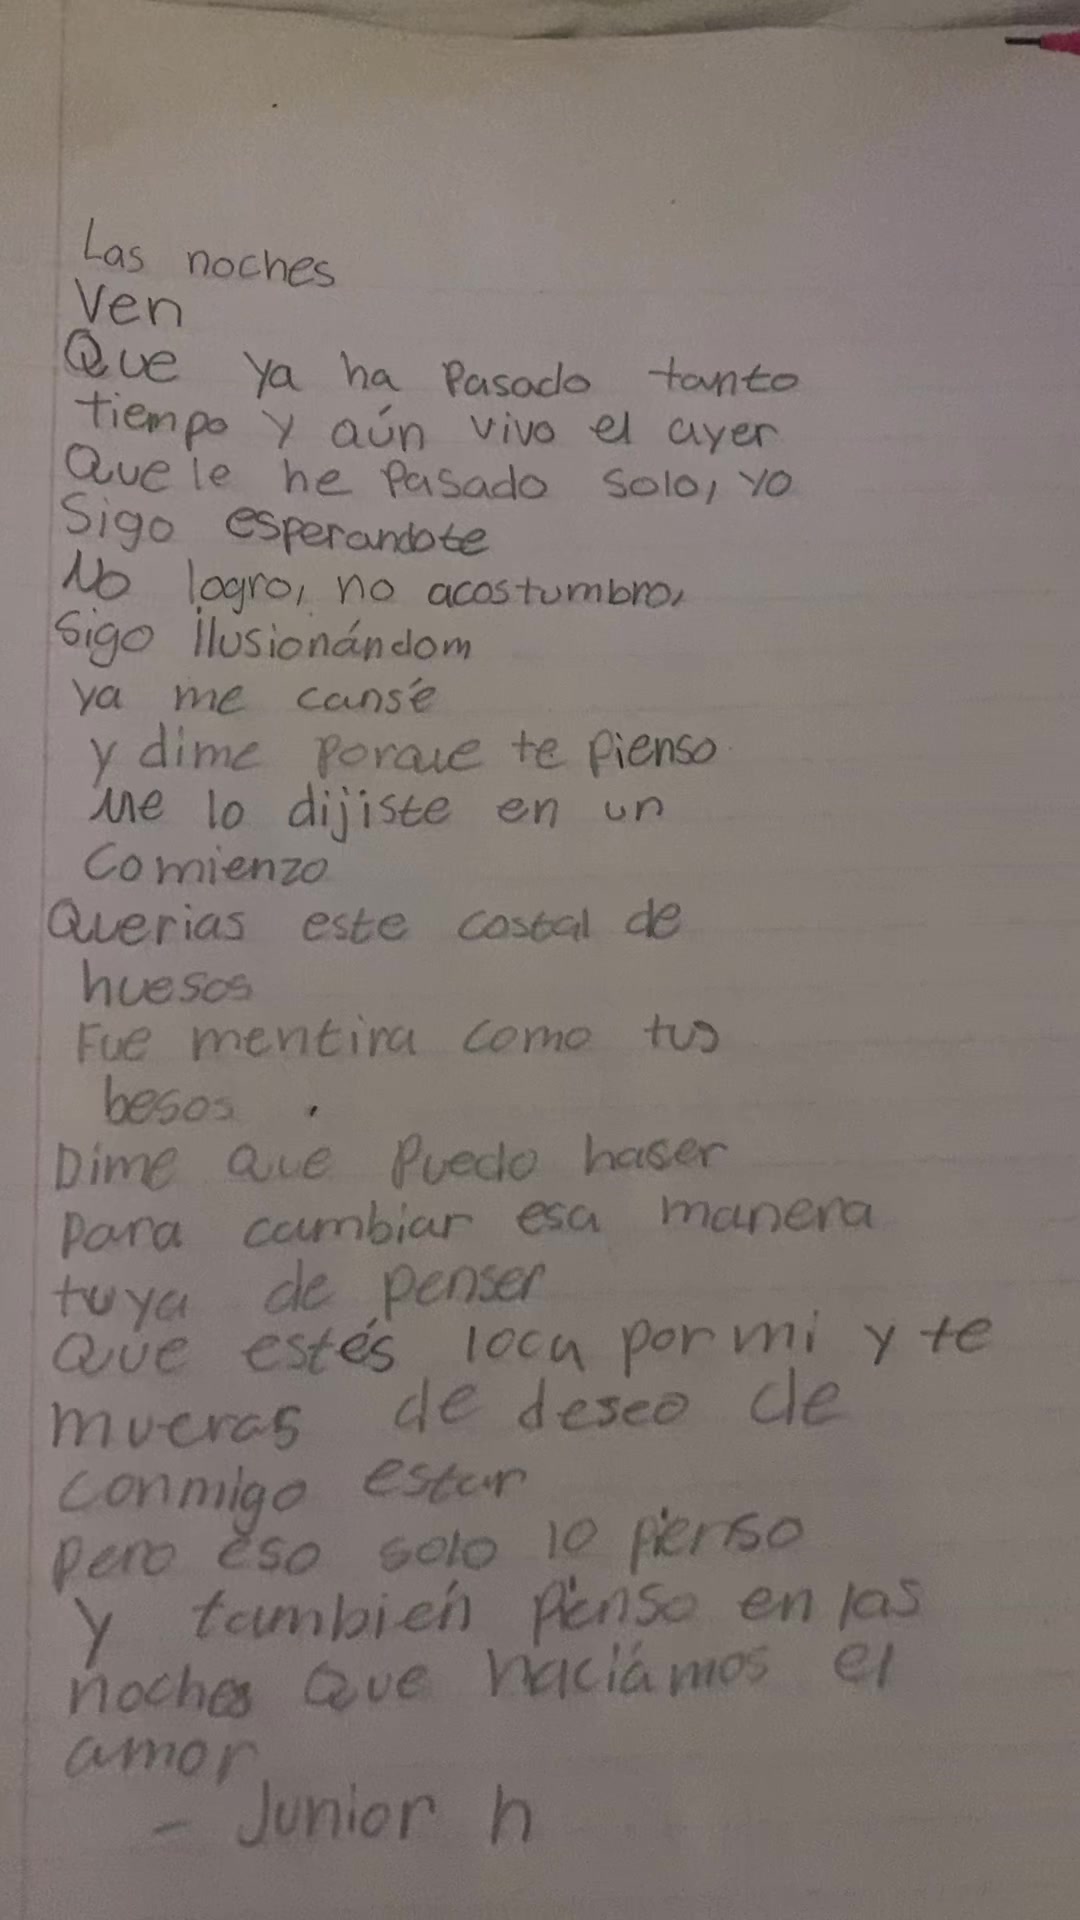 Las noches
Ven
Que ya ha pasado tanto
tiempo y aún vivo el ayer
Que le he pasado solo, yo
Sigo esperandote
No logro, no acostumbro,
Sigo ilusionándom
ya me cansé
y dime porque te pienso
Me lo dijiste en un
Comienzo
Querias este costal de
huesos
Fue mentira como tus
besos.
Dime que puedo haser
para cambiar esa manera
tuya de penser
Que estés loca por mi y te
mueras de deseo de
conmigo estar
pero eso solo lo pienso
y también pienso en las
noches que haciámos el
amor
- Junior h